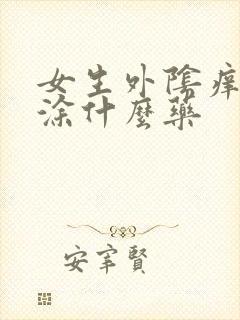 女生外陰痒
涂什麼藥
安宰賢